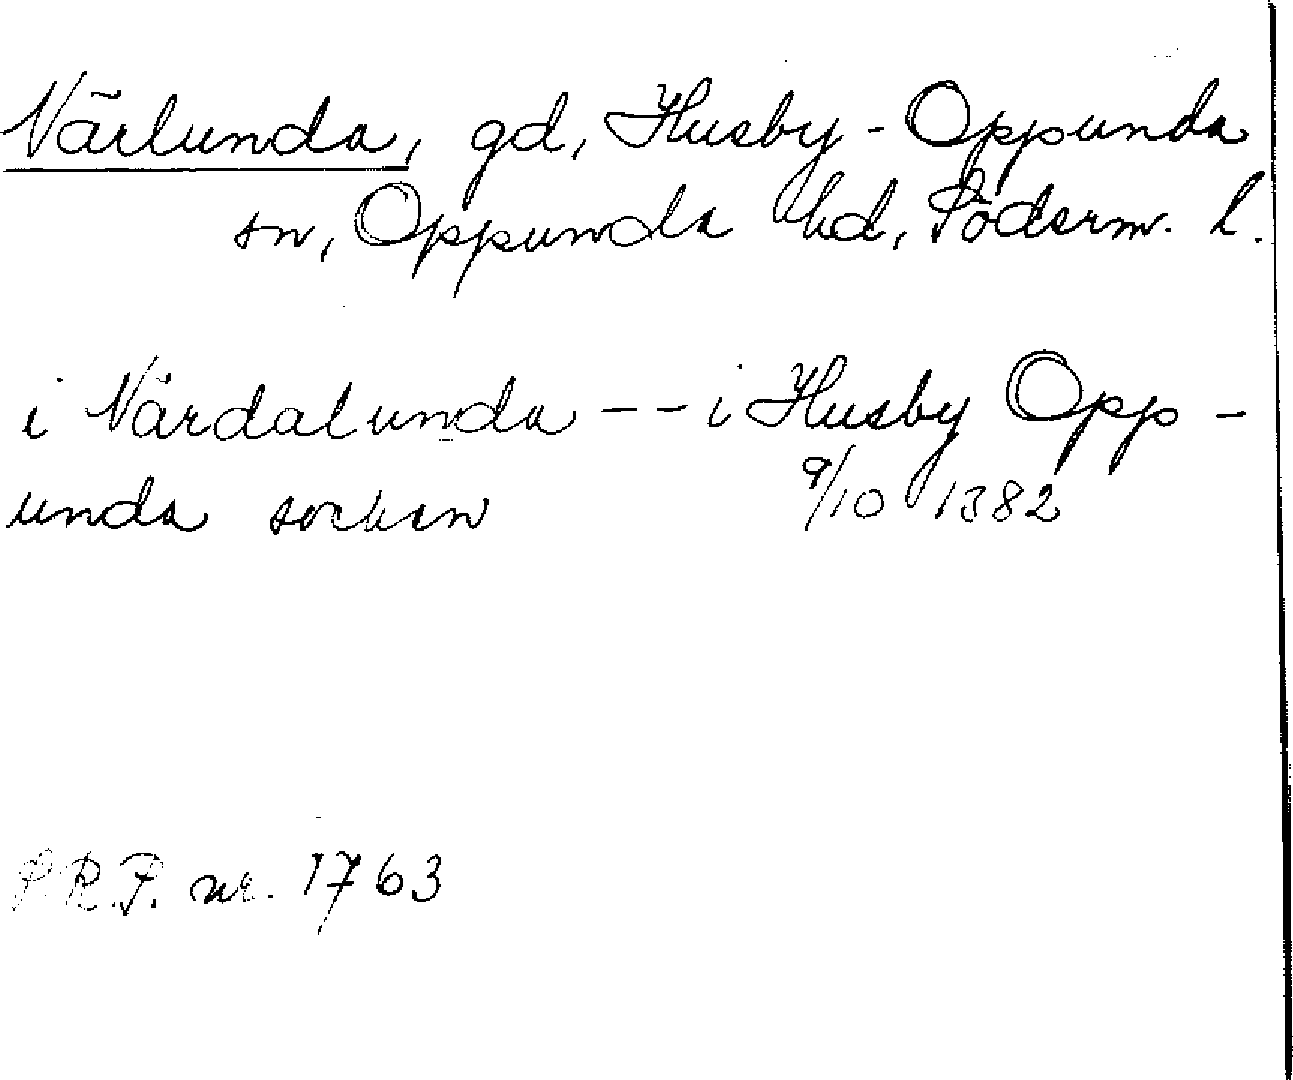 Närlunda, gd, Husby-Oppunda
sn, Oppunda hd, Söderm. l.
i Närdalunda -- i Husby Opp-
unda socken 9/10 1382
S.R.P. nr. 1763